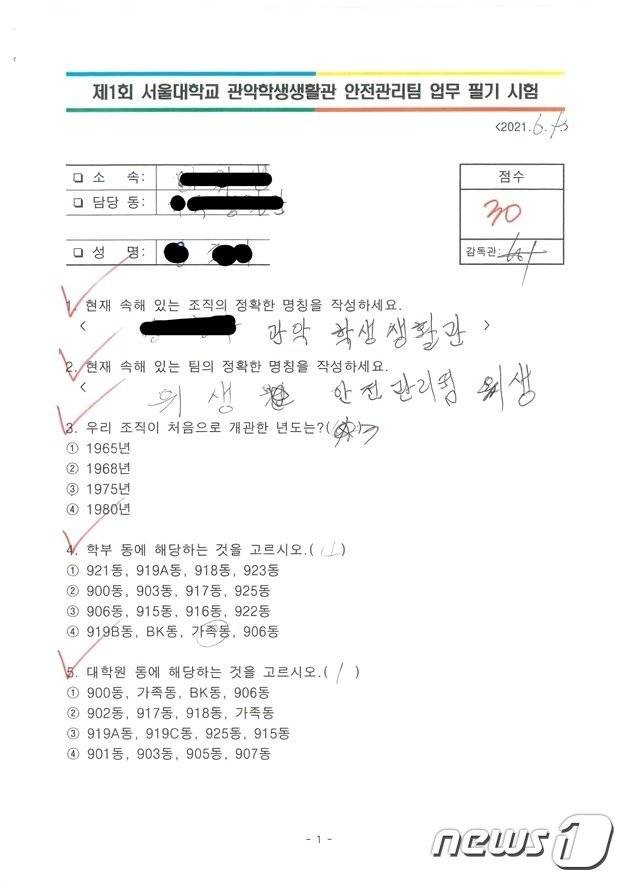 제1회 서울대학교 관악학생생활관 안전관리팀 업무 필기 시험
<2021.6.
❏ 소 속:
❏ 담당 동:
❏ 성 명:
점수
30
감독관:
1. 현재 속해 있는 조직의 정확한 명칭을 작성하세요.
< 관악 학생생활관 >
2. 현재 속해 있는 팀의 정확한 명칭을 작성하세요.
< 위생 안전관리팀 위생
3. 우리 조직이 처음으로 개관한 년도는?( )
① 1965년
② 1968년
③ 1975년
④ 1980년
4. 학부 동에 해당하는 것을 고르시오.( 1 )
① 921동, 919A동, 918동, 923동
② 900동, 903동, 917동, 925동
③ 906동, 915동, 916동, 922동
④ 919B동, BK동, 가족동, 906동
5. 대학원 동에 해당하는 것을 고르시오.( 1 )
① 900동, 가족동, BK동, 906동
② 902동, 917동, 918동, 가족동
③ 919A동, 919C동, 925동, 915동
④ 901동, 903동, 905동, 907동
- 1 -
news1